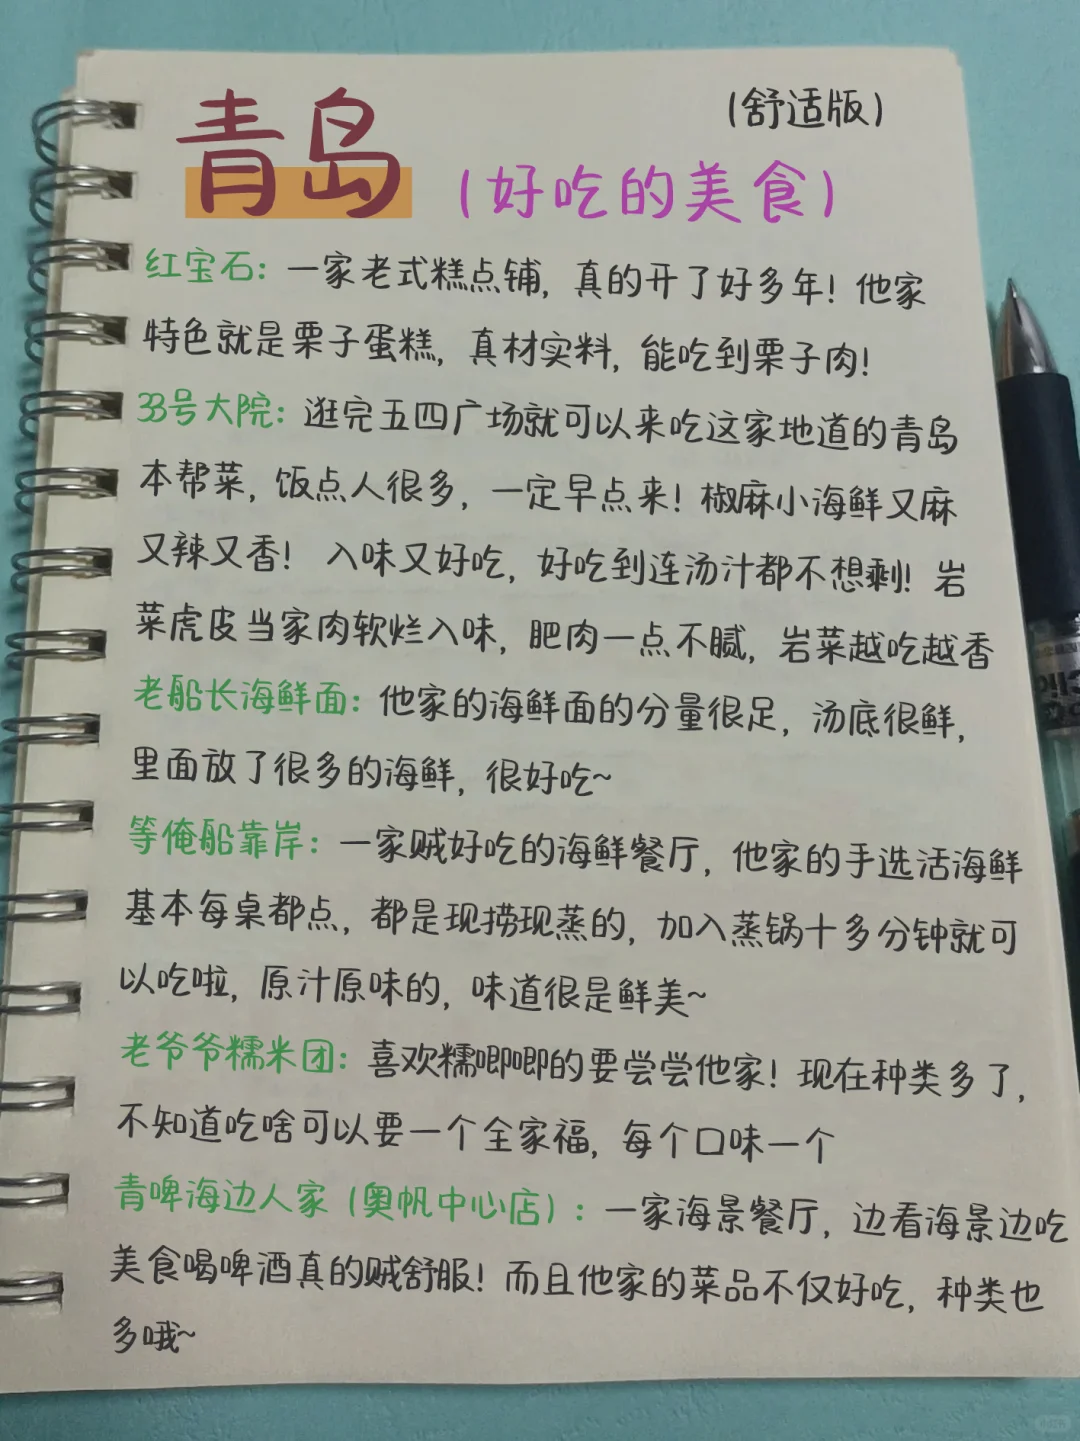 青岛
(舒适版)
(好吃的美食)
红宝石：一家老式糕点铺，真的开了好多年！他家
特色就是栗子蛋糕，真材实料，能吃到栗子肉！
33号大院：逛完五四广场就可以来吃这家地道的青岛
本帮菜，饭点人很多，一定早点来！椒麻小海鲜又麻
又辣又香！入味又好吃，好吃到连汤汁都不想剩！岩
菜虎皮当家肉软烂入味，肥肉一点不腻，岩菜越吃越香
老船长海鲜面：他家的海鲜面的分量很足，汤底很鲜，
里面放了很多的海鲜，很好吃~
等俺船靠岸：一家贼好吃的海鲜餐厅，他家的手选活海鲜
基本每桌都点，都是现捞现蒸的，加入蒸锅十多分钟就可
以吃啦，原汁原味的，味道很是鲜美~
老爷爷糯米团：喜欢糯唧唧的要尝尝他家！现在种类多了，
不知道吃啥可以要一个全家福，每个口味一个
青啤海边人家（奥帆中心店）：一家海景餐厅，边看海景边吃
美食喝啤酒真的贼舒服！而且他家的菜品不仅好吃，种类也
多哦~